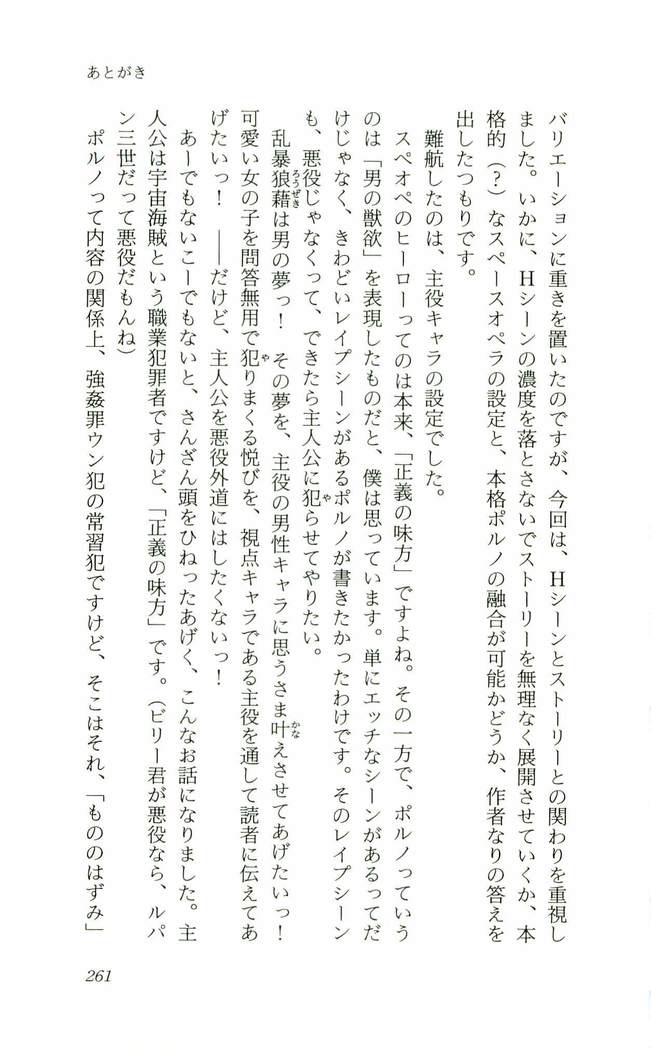 あとがき
バリエーションに重きを置いたのですが、今回は、Ｈシーンとストーリーとの関わりを重視し
ました。いかに、Ｈシーンの濃度を落とさないでストーリーを無理なく展開させていくか、本
格的（？）なスペースオペラの設定と、本格ポルノの融合が可能かどうか、作者なりの答えを
出したつもりです。
難航したのは、主役キャラの設定でした。
スペオペのヒーローってのは本来、「正義の味方」ですよね。その一方で、ポルノっていう
のは「男の獣欲」を表現したものだと、僕は思っています。単にエッチなシーンがあるってだ
けじゃなく、きわどいレイプシーンがあるポルノが書きたかったわけです。そのレイプシーン
も、悪役じゃなくって、できたら主人公に犯らせてやりたい。
乱暴狼藉は男の夢っ！　その夢を、主役の男性キャラに思うさま叶えさせてあげたいっ！
可愛い女の子を問答無用で犯りまくる悦びを、視点キャラである主役を通して読者に伝えてあ
げたいっ！　――だけど、主人公を悪役外道にはしたくないっ！
あーでもないこーでもないと、さんざん頭をひねったあげく、こんなお話になりました。主
人公は宇宙海賊という職業犯罪者ですけど、「正義の味方」です。（ビリー君が悪役なら、ルパ
ン三世だって悪役だもんね）
ポルノって内容の関係上、強姦罪ウン犯の常習犯ですけど、そこはそれ、「もののはずみ」
261